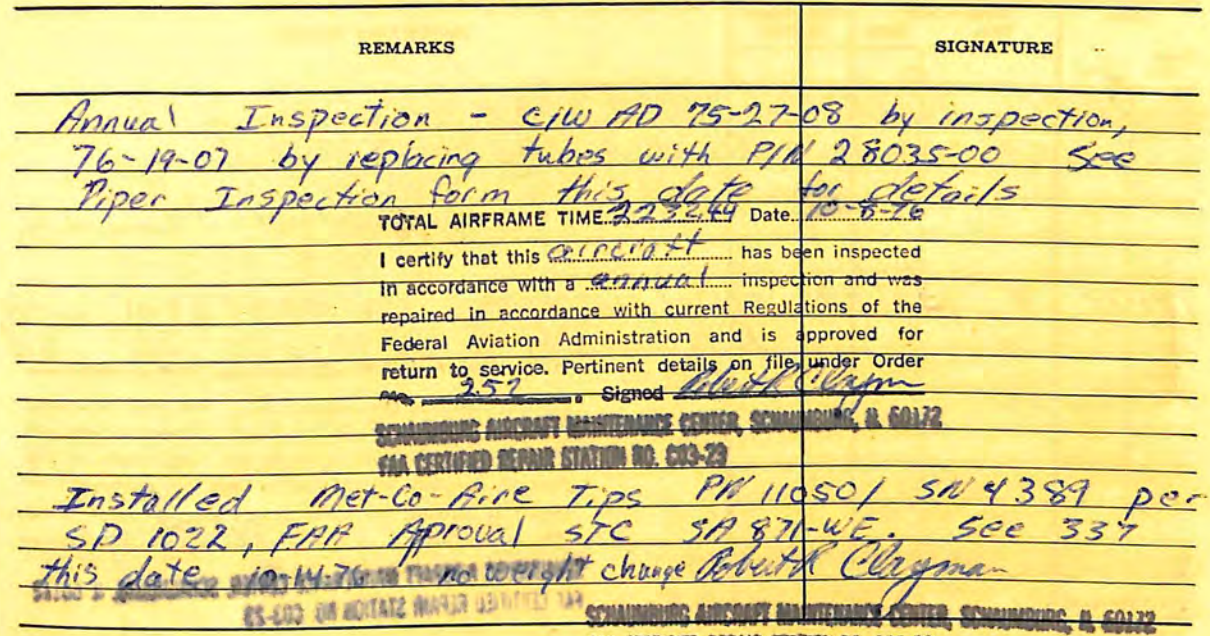 REMARKS SIGNATURE
Annual Inspection - C/W AD 75-27-08 by inspection,
76-19-07 by replacing tubes with P/N 28035-00 See
Piper Inspection form this date for details
TOTAL AIRFRAME TIME 2232.44 Date 10-8-76
I certify that this aircraft has been inspected
in accordance with a annual inspection and was
repaired in accordance with current Regulations of the
Federal Aviation Administration and is approved for
return to service. Pertinent details on file under Order
No. 257. Signed Robert R Clayman
SCHAUMBURG AIRCRAFT MAINTENANCE CENTER, SCHAUMBURG, IL 60172
FAA CERTIFIED REPAIR STATION NO. C03-29
Installed Met-Co-Aire Tips PN 110501 SN 4389 per
SD 1022, FAA Aproval STC SA 871-WE. See 337
this date 10-14-76 no weight change Robert R Clayman
SCHAUMBURG AIRCRAFT MAINTENANCE CENTER, SCHAUMBURG, IL 60172